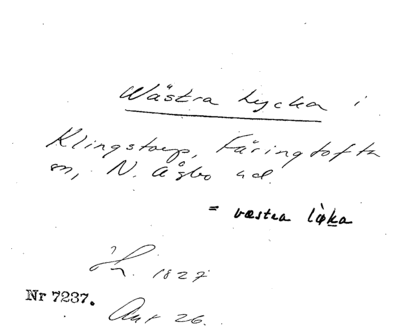 Wästra Lycka i
Klingstorp, Färingtofta
sn, N. Åsbo hd.
= væstra lø̀ka
1827
Nr 7237.
26.